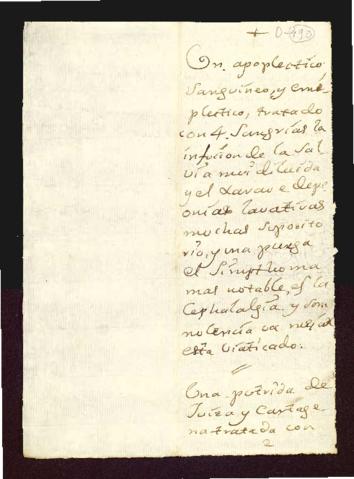 + D-493
Un apoplectico
sanguineo, y emé-
plectico, tratado
con 4. sangrias la
infucion de la sal
via mui diluida
y el xarave de peo
nias lavativas
muchas suposito
rio, y una purga
el simpthoma
mas notable, es la
Cephalalgia y som
nolencia va mejor
esta viaticado.
=
Una putrida de
Juiea y Cartage
na tratada con
2